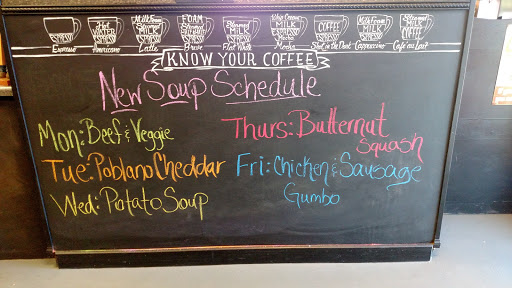 Espresso
Hot WATER ESPRESSO
Americano
Milk Foam Steamed MILK ESPRESSO
Latte
FOAM Steamed ESPRESSO
Breve
Steamed MILK ESPRESSO
Flat White
Whip Cream MILK ESPRESSO
Mocha
COFFEE ESPRESSO
Shot in the Dark
Milk Foam Steamed MILK ESPRESSO
Cappuccino
Steamed MILK COFFEE
Café au Lait
KNOW YOUR COFFEE
New Soup Schedule
Mon: Beef & Veggie
Tue: Poblano Cheddar
Wed: Potato Soup
Thurs: Butternut
Squash
Fri: Chicken & Sausage
Gumbo